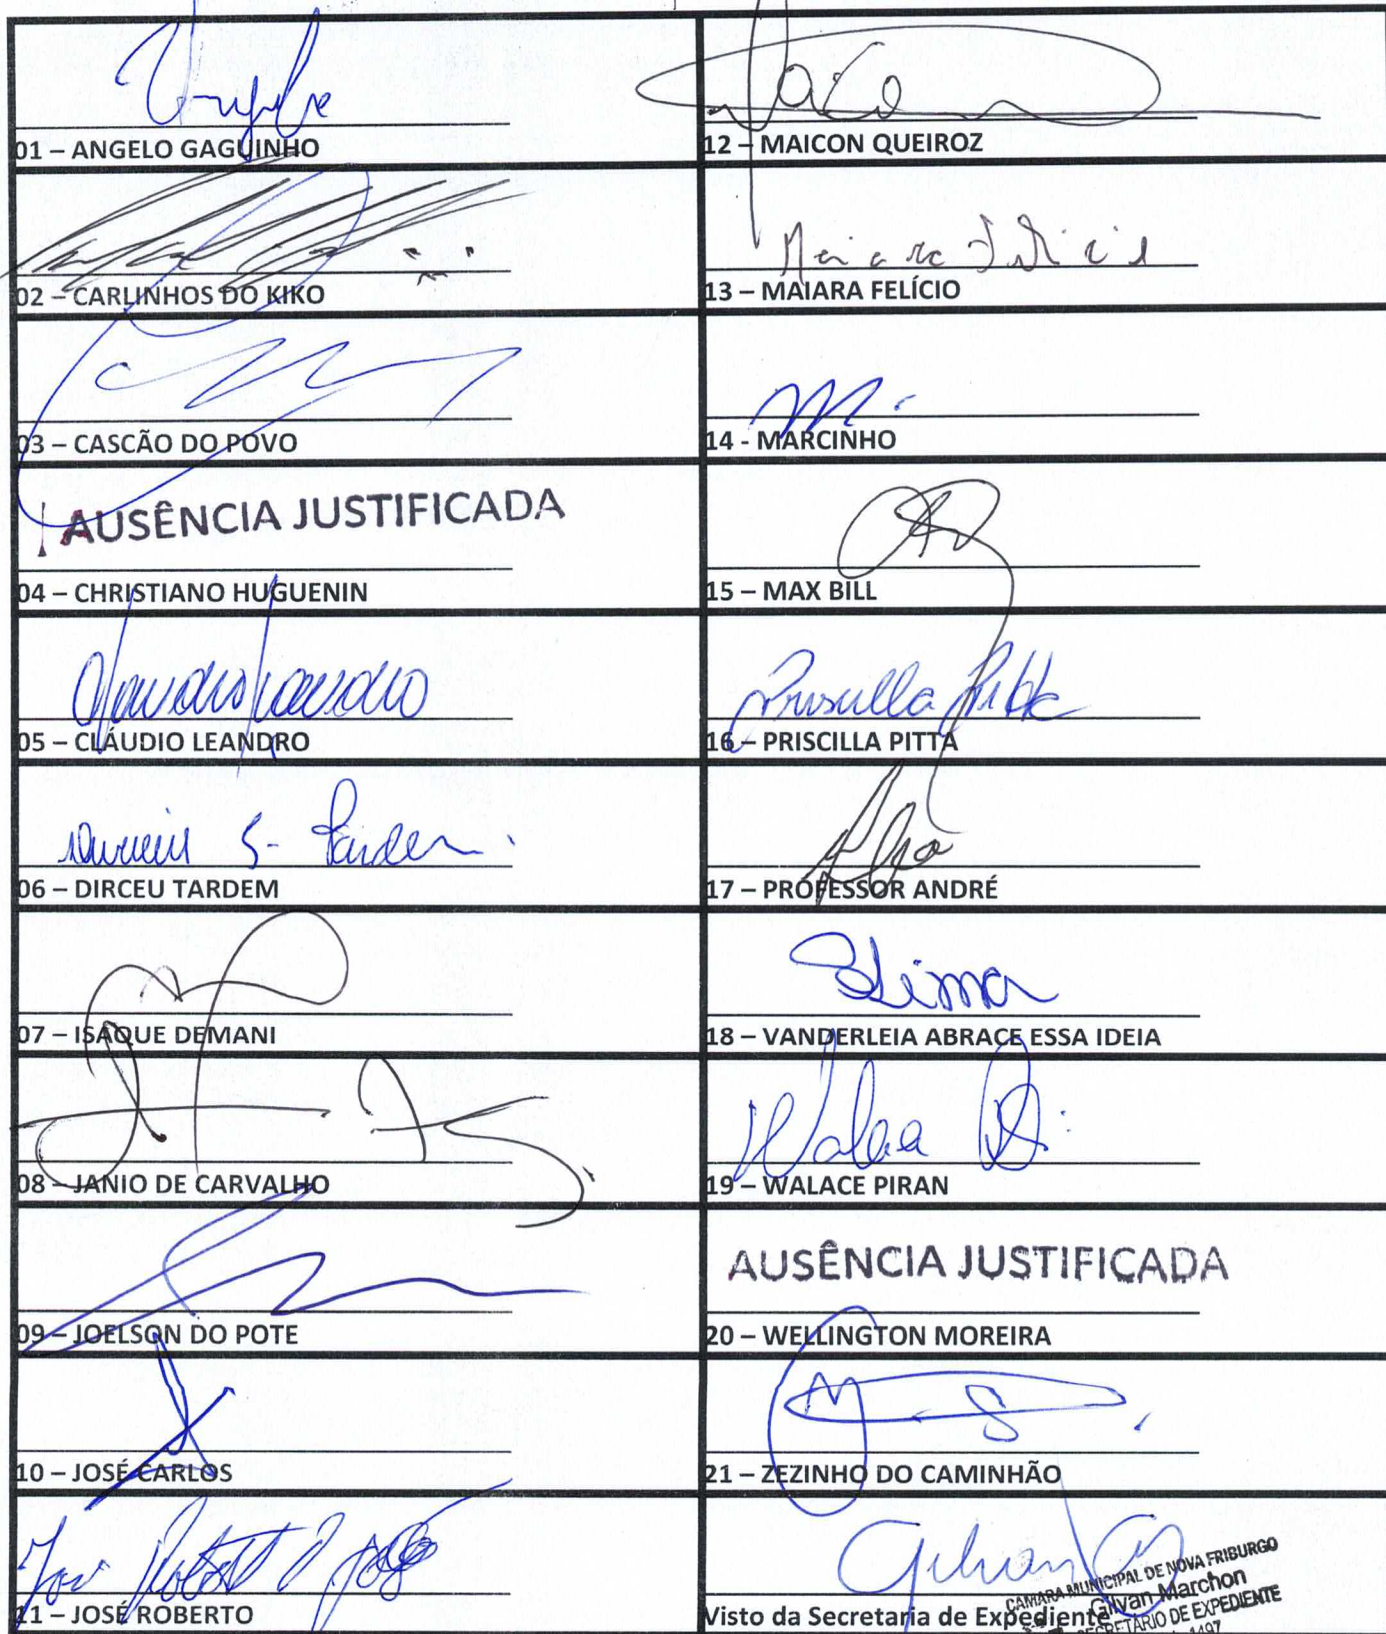 01 – ANGELO GAGUINHO
02 – CARLINHOS DO KIKO
03 – CASCÃO DO POVO
AUSÊNCIA JUSTIFICADA
04 – CHRISTIANO HUGUENIN
Claudio Leandro
05 – CLÁUDIO LEANDRO
Dirceu S. Tardem
06 – DIRCEU TARDEM
07 – ISAQUE DEMANI
08 – JANIO DE CARVALHO
09 – JOELSON DO POTE
10 – JOSÉ CARLOS
José Roberto
11 – JOSÉ ROBERTO
12 – MAICON QUEIROZ
Maiara Felício
13 – MAIARA FELÍCIO
14 - MARCINHO
15 – MAX BILL
Priscilla Pitta
16 – PRISCILLA PITTA
17 – PROFESSOR ANDRÉ
Lima
18 – VANDERLEIA ABRACE ESSA IDEIA
Walace
19 – WALACE PIRAN
AUSÊNCIA JUSTIFICADA
20 – WELLINGTON MOREIRA
21 – ZEZINHO DO CAMINHÃO
Gilvan
CAMARA MUNICIPAL DE NOVA FRIBURGO
Gilvan Marchon
Visto da Secretaria de Expediente
SECRETÁRIO DE EXPEDIENTE
1497